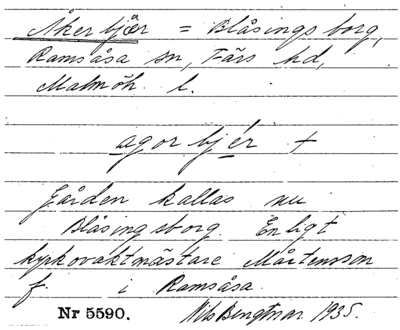 Åkerbjær = Blåsingsborg,
Ramsåsa sn, Färs hd,
Malmöh. l.
agorbjér +
Gården kallas nu
Blåsingsborg. Enligt
kyrkovaktmästare Mårtensson
f. i Ramsåsa.
Nr 5590. Nils Bengtsson 1935.